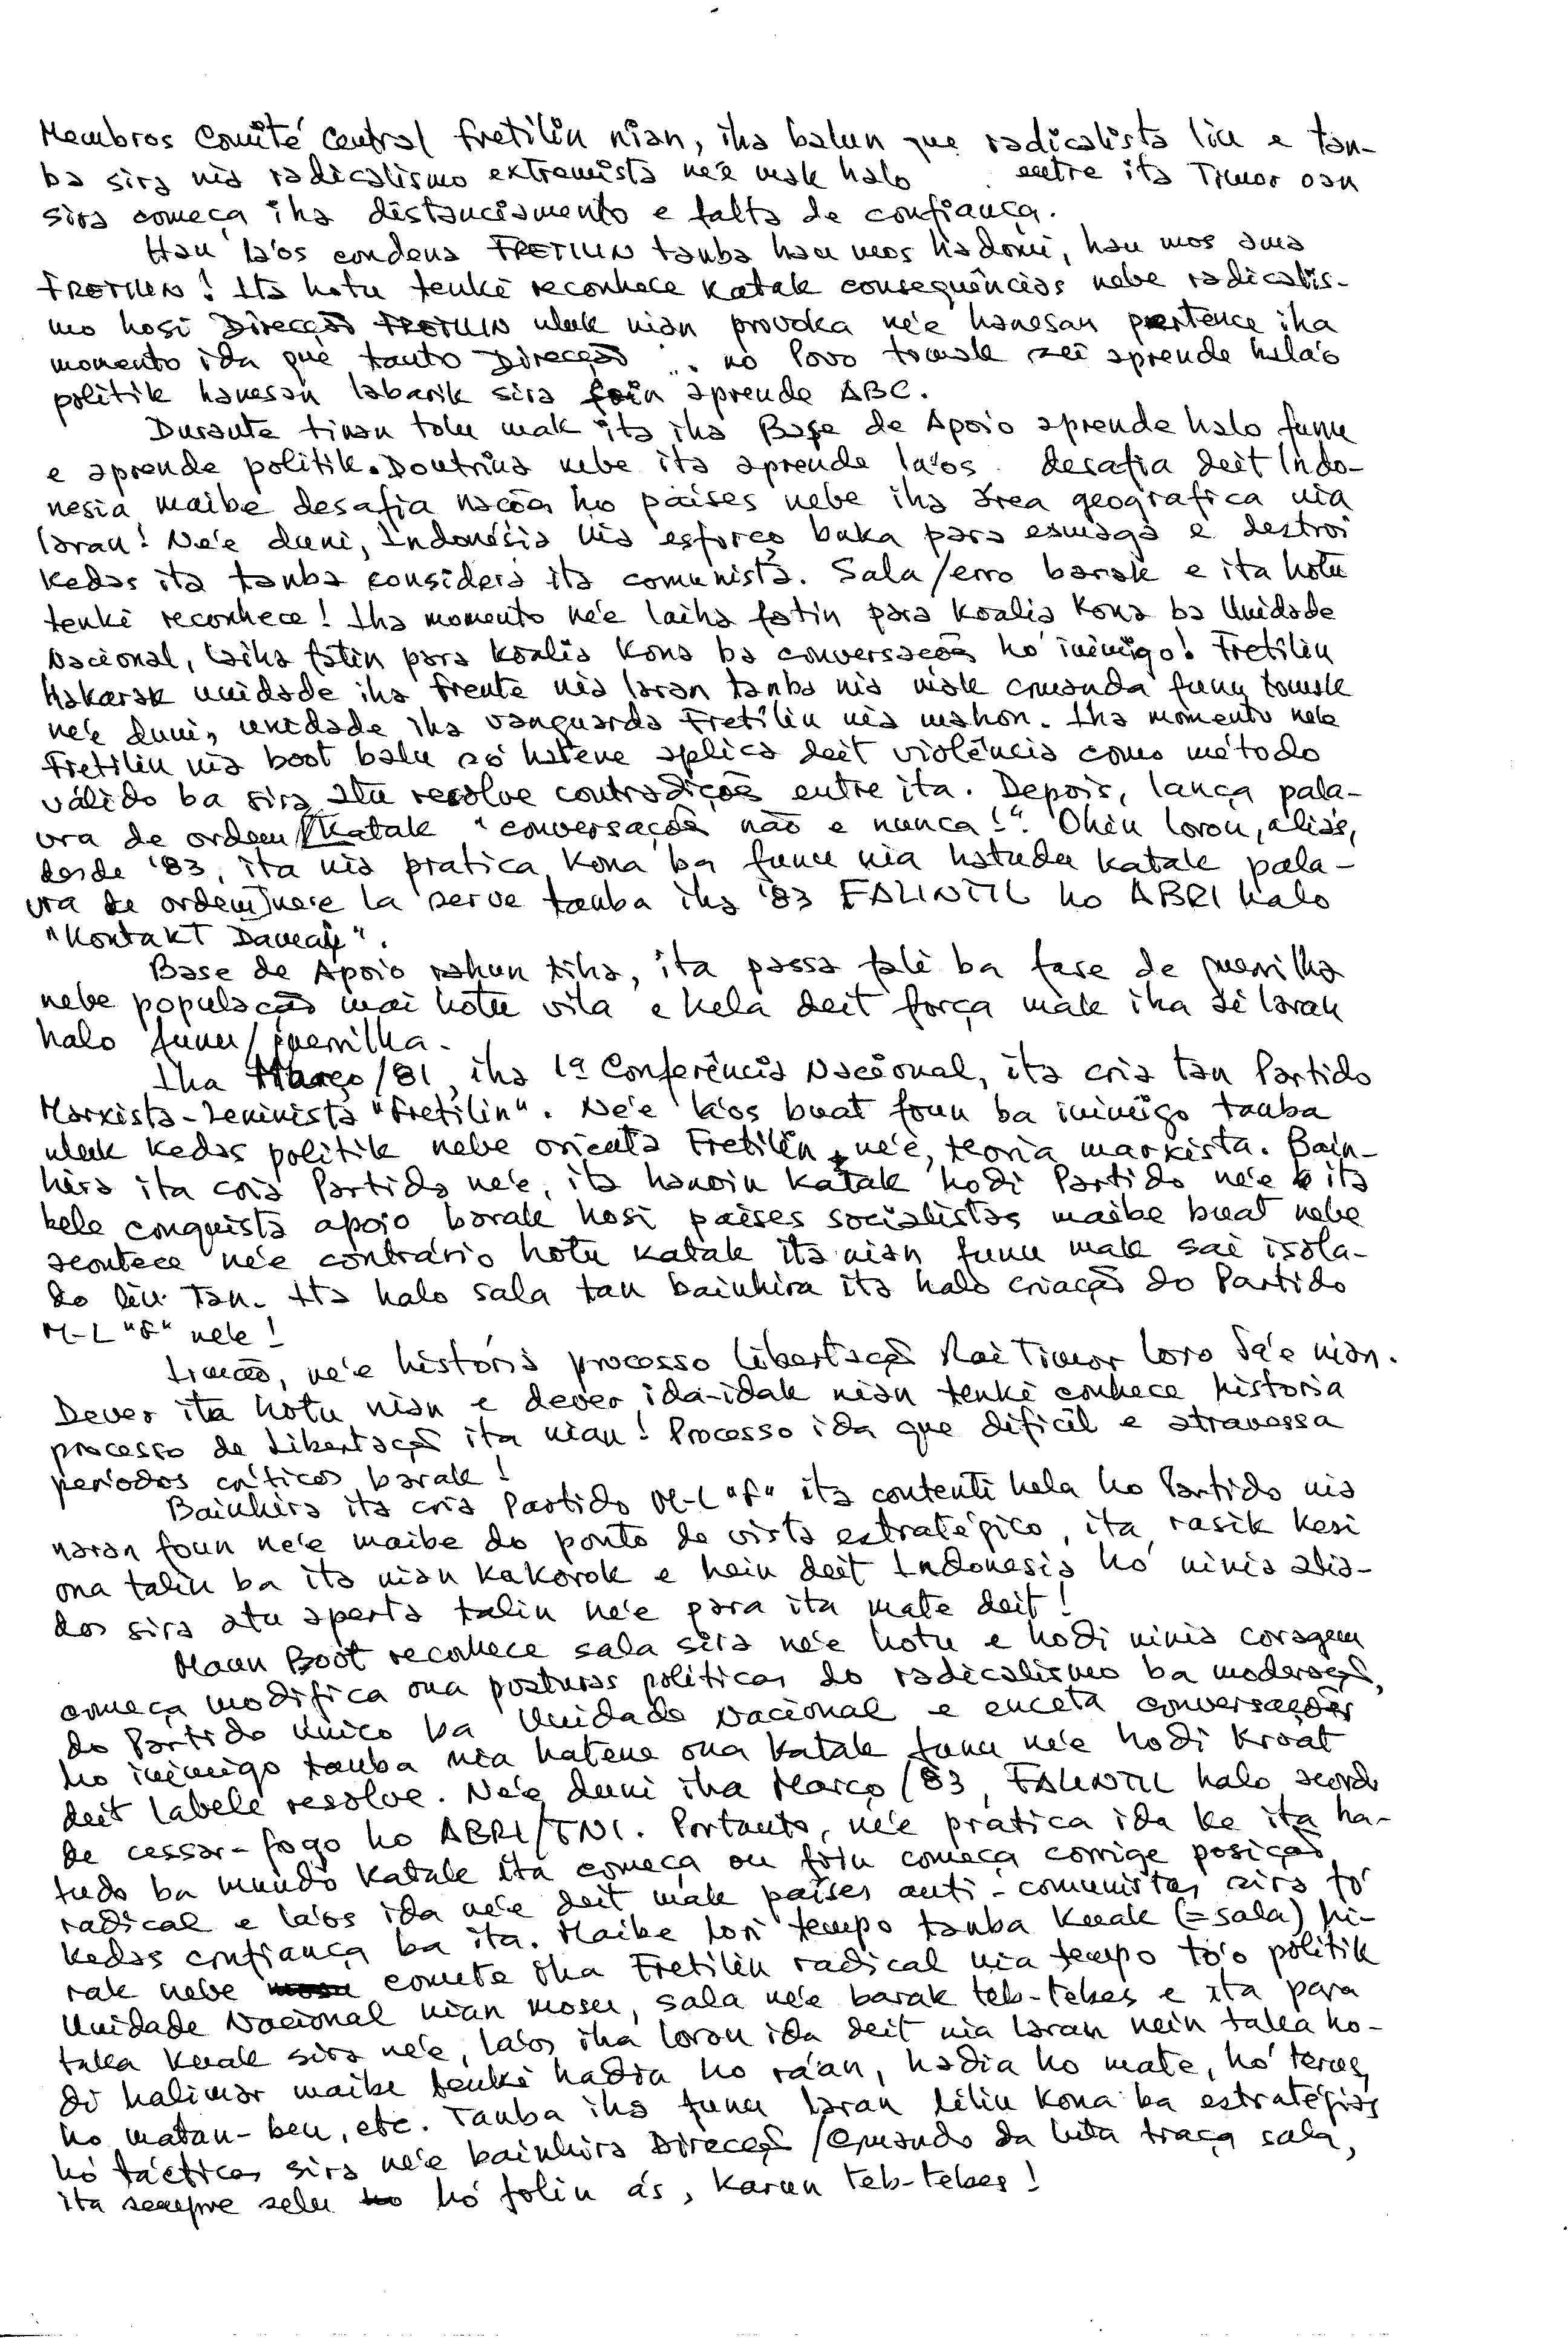 Membros Comité Central Fretilin nian, iha balun que radicalista liu e tan-
ba sira nia radicalismo extremista ne'e mak halo entre ita Timor oan
sira começa iha distanciamento e falta de confiança.
Hau la'os condena FRETILIN tanba hau mos hadomi, hau mos ama
FRETILIN! Ita hotu tenki reconhece katak consequências nebe radicalis-
mo hosi Direcção FRETILIN uluk nian provoka ne'e hanesan pertence iha
momento ida que tanto Direcção no Povo tomak sei aprende hela'o
politik hanesan labarik sira foin aprende ABC.
Durante tinan tolu mak ita iha Base de Apoio aprende halo funu
e aprende politik. Doutrina nebe ita aprende la'os desafia deit Indo-
nesia maibe desafia nações ho países nebe iha área geografica nia
laran! Ne'e duni, Indonésia nia esforço buka para esmaga e destroi
kedas ita tanba considera ita comunista. Sala/erro barak e ita hotu
tenki reconhece! Iha momento ne'e laiha fatin para koalia kona ba Unidade
Nacional, laiha fatin para koalia kona ba conversações ho inimigo! Fretilin
hakarak unidade iha Frente nia laran tanba nia mak cmanda funu tomak
ne'e duni, unidade iha vanguarda Fretilin nia mahon. Iha momento nebe
Fretilin nia boot balu só hatene aplica deit violência como método
válido ba sira atu resolve contradições entre ita. Depois, lança pala-
vra de ordem katak "conversações não e nunca!". Ohin loron, aliás,
desde '83, ita nia pratica kona ba funu nia hatudu katak pala-
vra de ordem ne'e la serve tanba iha '83 FALINTIL ho ABRI halo
"Kontakt Damai".
Base de Apoio rahun tiha, ita passa fali ba fase de guerrilha
nebe população mai hotu vila e hela deit força mak iha ai laran
halo funu/guerrilha.
Iha Março/81, iha 1ª Conferência Nacional, ita cria tan Partido
Marxista-Leninista "Fretilin". Ne'e la'os buat foun ba inimigo tanba
uluk kedas politik nebe orienta Fretilin, ne'e, teoria marxista. Bain-
hira ita cria Partido ne'e, ita hanoin katak hodi Partido ne'e ita
bele conquista apoio barak hosi países socialistas maibe buat nebe
acontece ne'e contrário hotu katak ita nian funu mak sai isola-
do liu tan. Ita halo sala tan bainhira ita halo criação do Partido
M-L "F" nebe!
Irmão, ne'e história processo libertação Rai Timor Loro Sa'e nian.
Dever ita hotu nian e dever ida-idak nian tenki conhece historia
processo de Libertação ita nian! Processo ida que dificil e atravessa
períodos críticos barak!
Bainhira ita cria Partido M-L "F" ita contenti hela ho Partido nia
naran foun ne'e maibe do ponto de vista estratégico, ita rasik kesi
ona talin ba ita nian kakorok e hein deit Indonesia hó ninia alia-
dos sira atu aperta talin ne'e para ita mate deit!
Maun Boot reconhece sala sira ne'e hotu e hodi ninia coragem
começa modifica ona posturas políticas do radicalismo ba moderação,
do Partido Único ba Unidade Nacional e enceta conversações
ho inimigo tanba nia hatene ona katak funu ne'e hodi kroat
deit labele resolve. Ne'e duni iha Março/83, FALINTIL halo acordo
de cessar-fogo ho ABRI/TNI. Portanto, ne'e pratica ida ke ita ha-
tudo ba mundo katak ita começa ou foin começa corrige posição
radical e la'os ida ne'e deit mak países anti-comunistas sira fó
kedas confiança ba ita. Maibe lori tempo tanba kuak (=sala) hi-
rak nebe comete iha Fretilin radical nia tempo to'o politik
Unidade Nacional nian mosu, sala ne'e barak teb-tebes e ita para
taka kuak sira ne'e, la'os iha loron ida deit nia laran nein taka ho-
di halimar maibe tenki hadia ho ra'an, hadia ho mate, hó terus,
ho matan-ben, etc. Tanba iha funu laran liliu kona ba estratégias
hó tácticas sira ne'e bainhira Direcção/Cmando da luta traça sala,
ita sempre selu hó folin ás, karun teb-tebes!